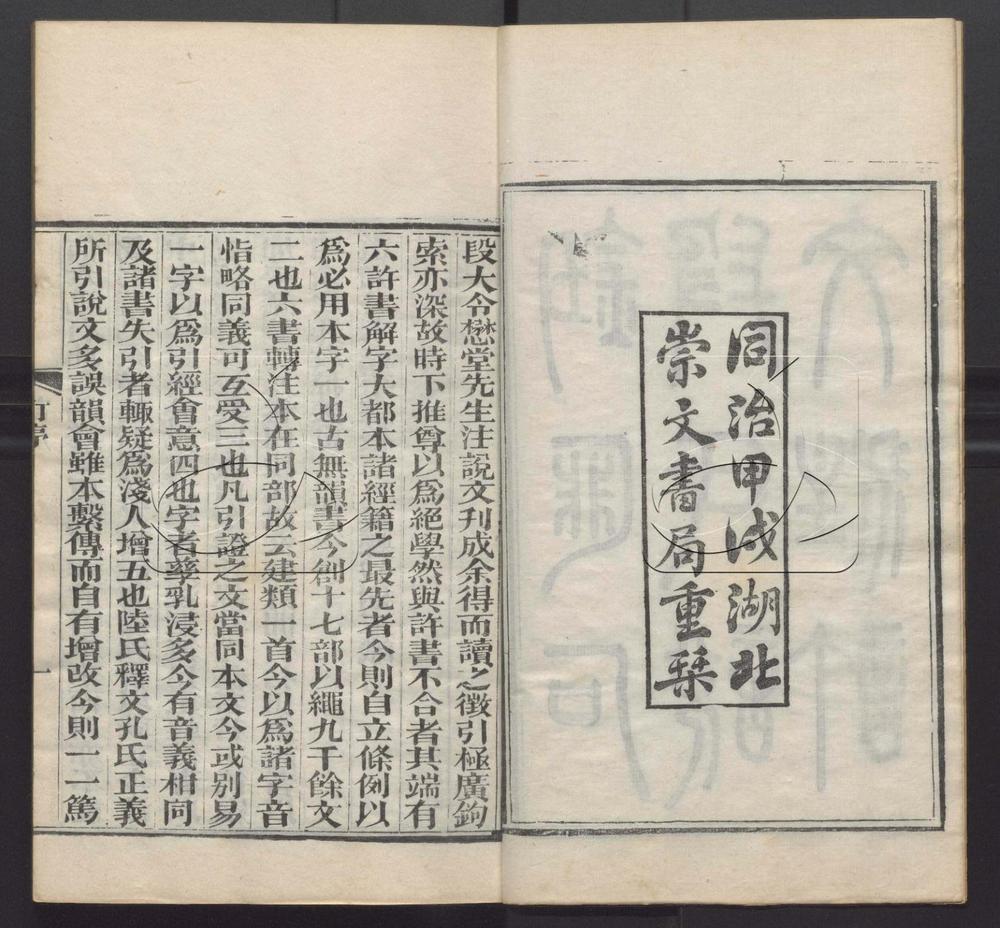 同治甲戌湖北
崇文書局重栞
段大令懋堂先生注說文刋成余得而讀之徵引極廣鉤
索亦深故時下推尊以爲絕學然與許書不合者其端有
六許書解字大都本諸經籍之最先者今則自立條例以
爲必用本字一也古無韻書今創十七部以繩九千餘文
二也六書轉注本在同部故云建類一首今以爲諸字音
恉略同義可互受三也凡引證之文當同本文今或別易
一字以爲引經會意四也字者孳乳浸多今有音義相同
及諸書失引者輒疑爲淺人增五也陸氏釋文孔氏正義
所引說文多誤韻會雖本繫傳而自有增改今則一一篤
訂序
一